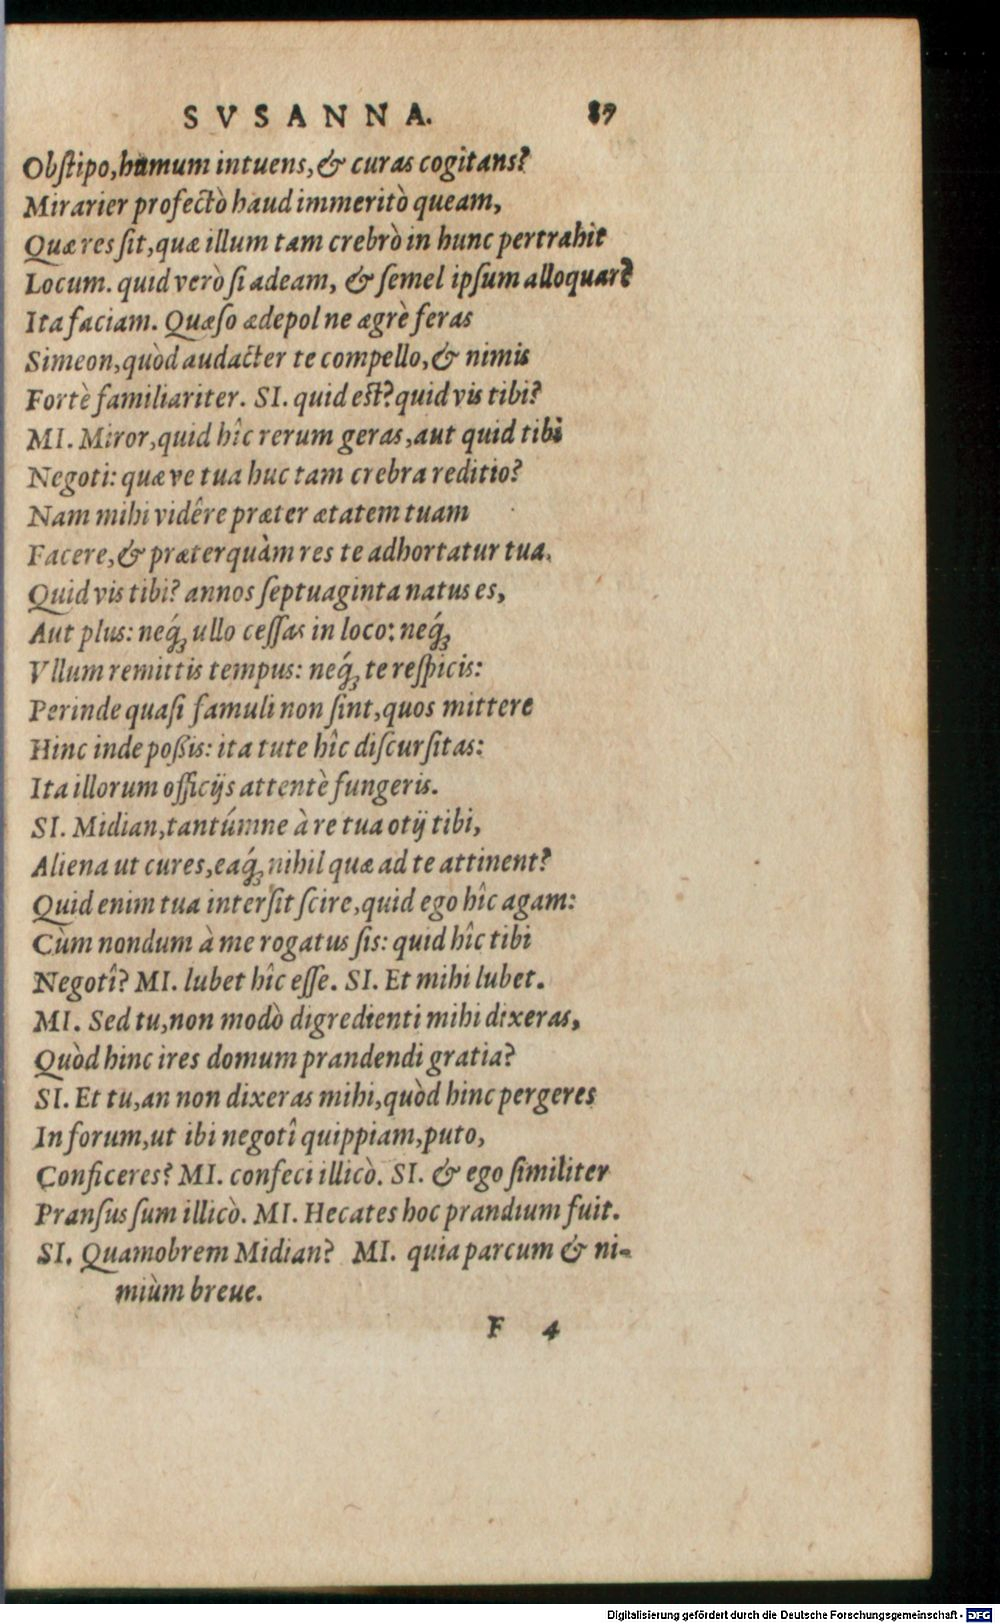 SVSANNA. 87
Obſtipo, humum intuens, & curas cogitans?
Mirarier profectò haud immeritò queam,
Quæ res ſit, quæ illum tam crebrò in hunc pertrahit
Locum. quid verò ſi adeam, & ſemel ipſum alloquar?
Ita faciam. Quæſo ædepol ne ægrè feras
Simeon, quòd audacter te compello, & nimis
Fortè familiariter. SI. quid eſt? quid vis tibi?
MI. Miror, quid hîc rerum geras, aut quid tibi
Negoti: quæ ve tua huc tam crebra reditio?
Nam mihi vidêre præter ætatem tuam
Facere, & præterquàm res te adhortatur tua.
Quid vis tibi? annos ſeptuaginta natus es,
Aut plus: neq́ꝫ ullo ceſſas in loco: neq́ꝫ
Vllum remittis tempus: neq́ꝫ te reſpicis:
Perinde quaſi famuli non ſint, quos mittere
Hinc inde poßis: ita tute hîc diſcurſitas:
Ita illorum officijs attentè fungeris.
SI. Midian, tantúmne à re tua otij tibi,
Aliena ut cures, eaq́ꝫ nihil quæ ad te attinent?
Quid enim tua interſit ſcire, quid ego hîc agam:
Cùm nondum à me rogatus ſis: quid hîc tibi
Negotî? MI. lubet hîc eſſe. SI. Et mihi lubet.
MI. Sed tu, non modò digredienti mihi dixeras,
Quòd hinc ires domum prandendi gratia?
SI. Et tu, an non dixeras mihi, quòd hinc pergeres
In forum, ut ibi negotî quippiam, puto,
Conficeres? MI. confeci illicò. SI. & ego ſimiliter
Pranſus ſum illicò. MI. Hecates hoc prandium fuit.
SI. Quamobrem Midian? MI. quia parcum & ni-
miùm breue.
F 4
Digitalisierung gefördert durch die Deutsche Forschungsgemeinschaft - DFG